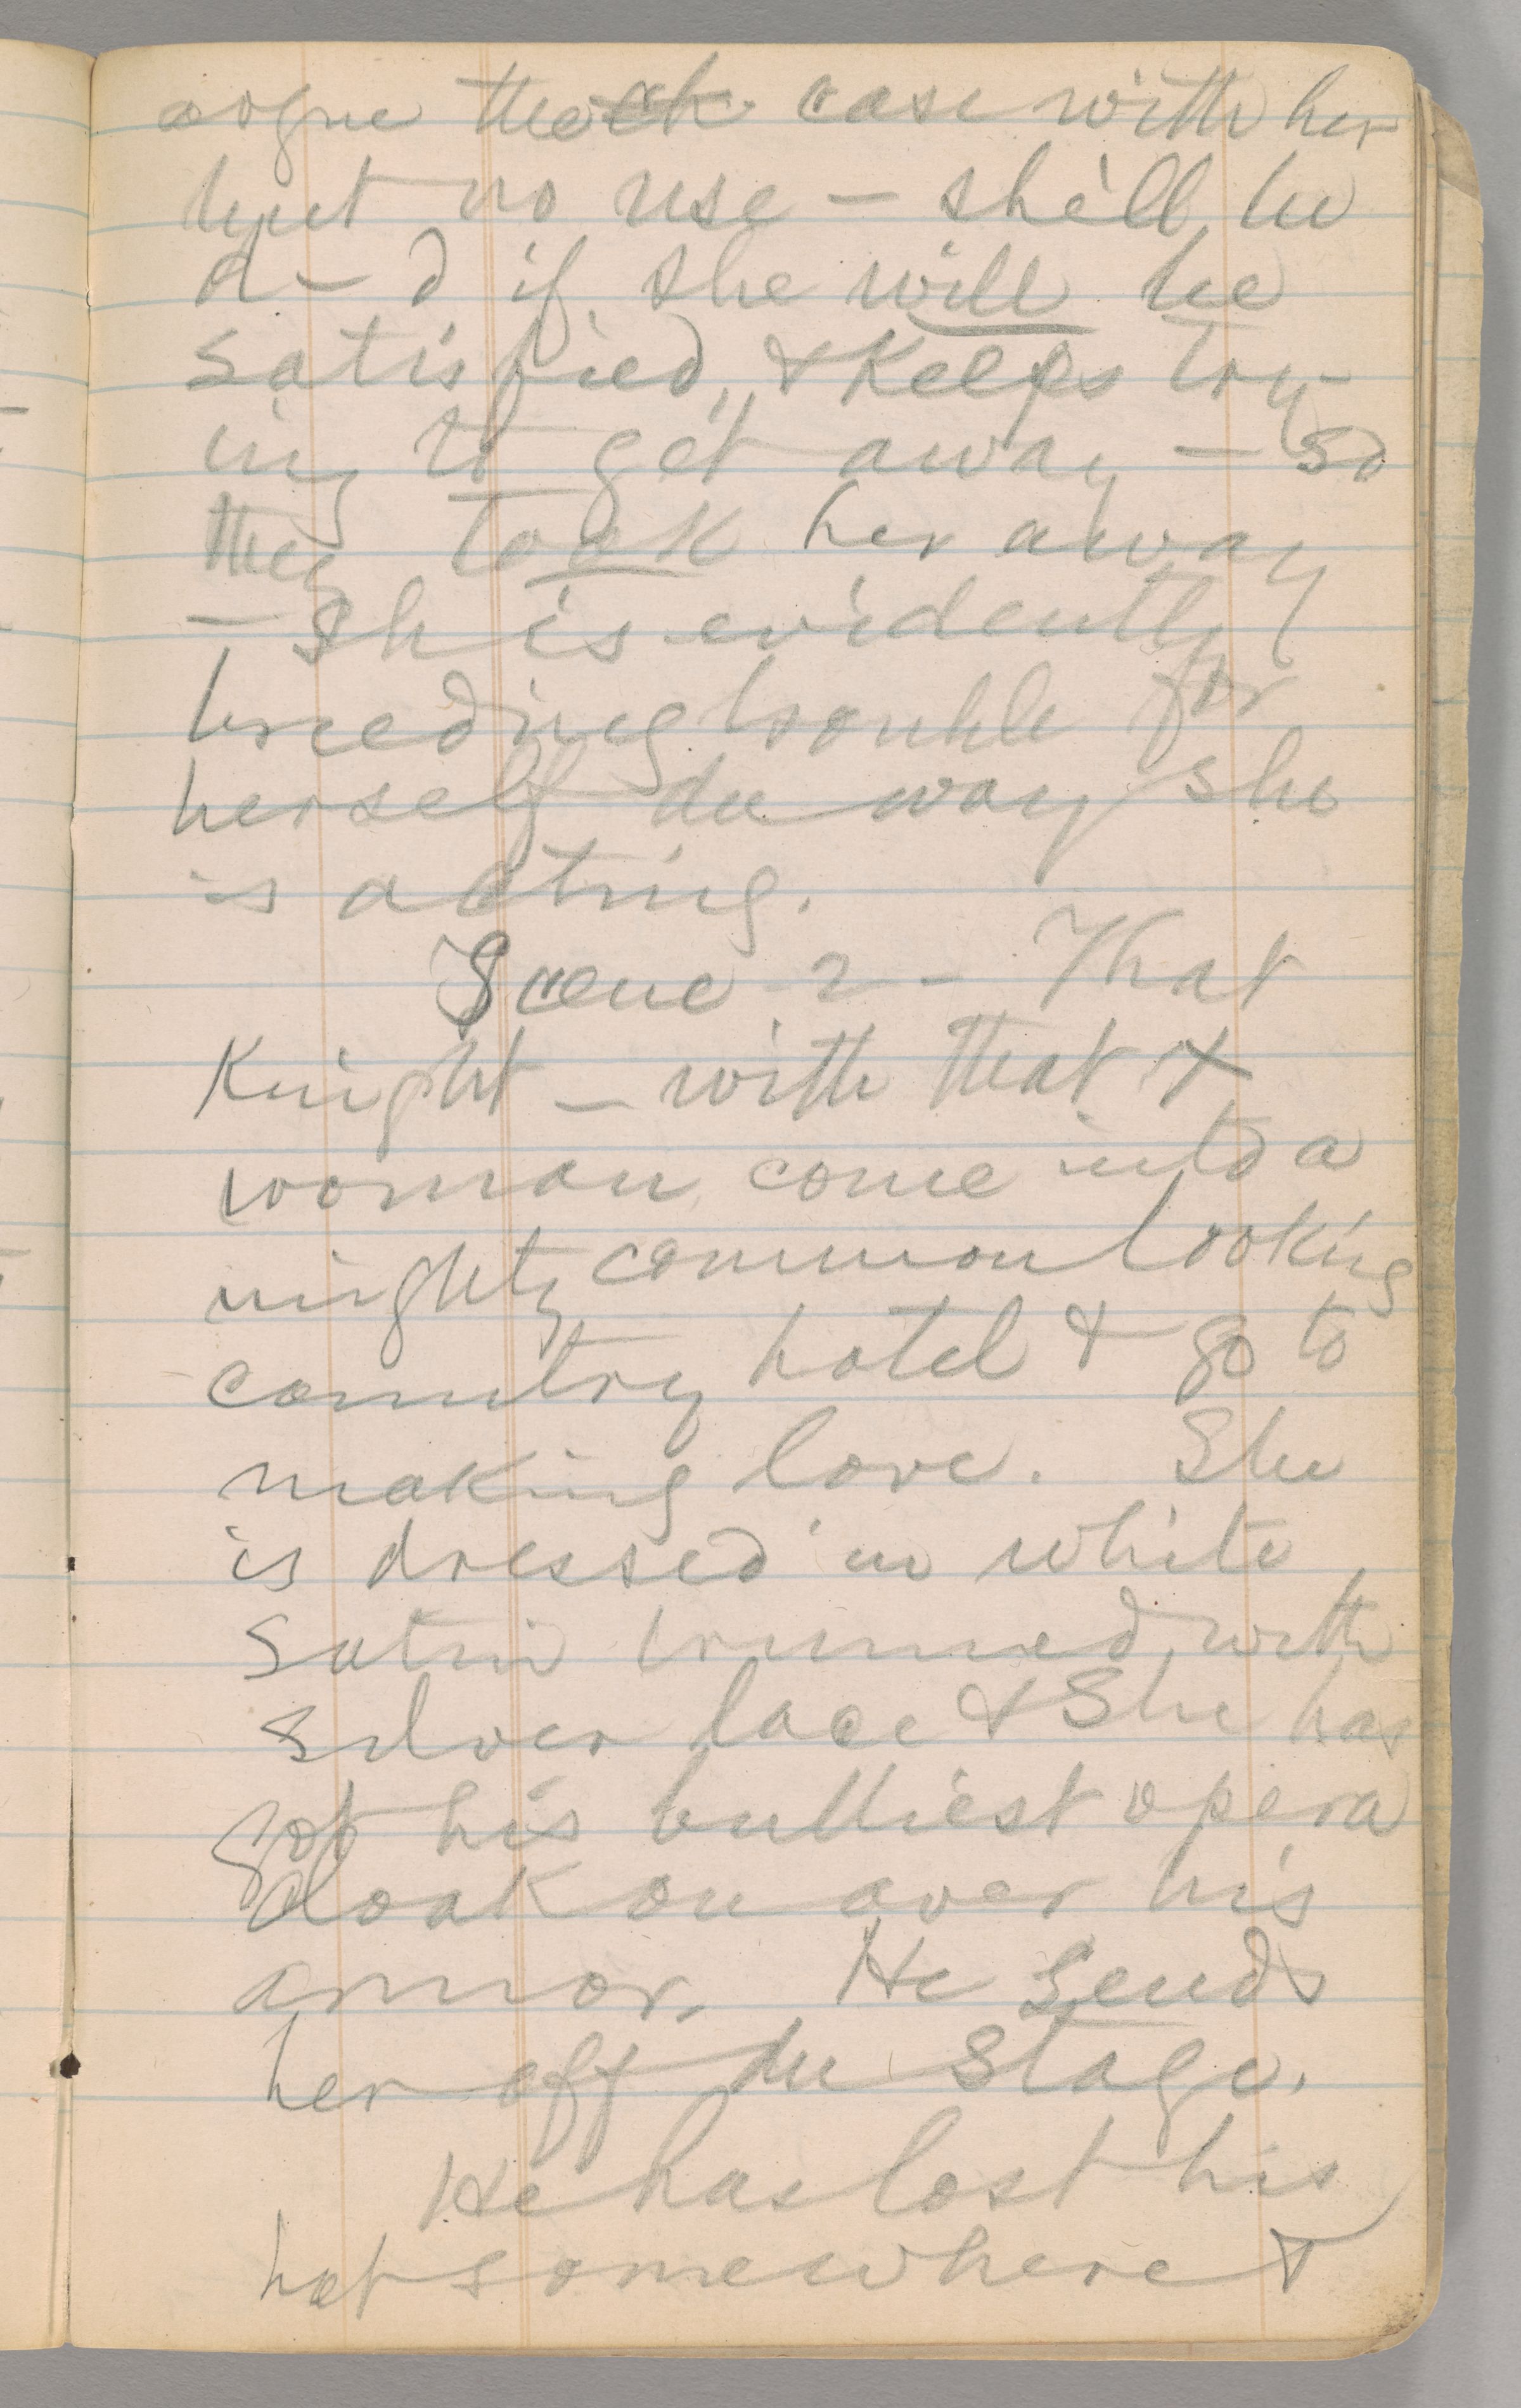 argue the ck case with her
but no use — she'll be
d — d if she will be
satisfied, & keeps try-
ing to get away — so
they took her away
— Sh is evidently
breeding trouble for
herself de way she
is acting.
Scene 2 — That
Knight — with that X
woman come into a
mighty common looking
country hotel & go to
making love. She
is dressed in white
satin trimmed with
silver lace & She has
got his bulliest opera
cloak on over his
armor. He sends
her off de stage.
He has lost his
hat somewhere &